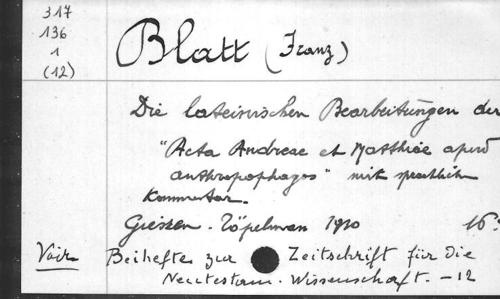 317
136
1
(12)
Blatt (Franz)
Die lateinischen Bearbeitungen der
"Acta Andreae et Matthiae apud
anthropophagos" mit sprachlich
Kommentar.
Giessen. Töpelman 1930 16:
Voir Beihefte zur Zeitschrift für die
Neutestam. Wissenschaft. - 12